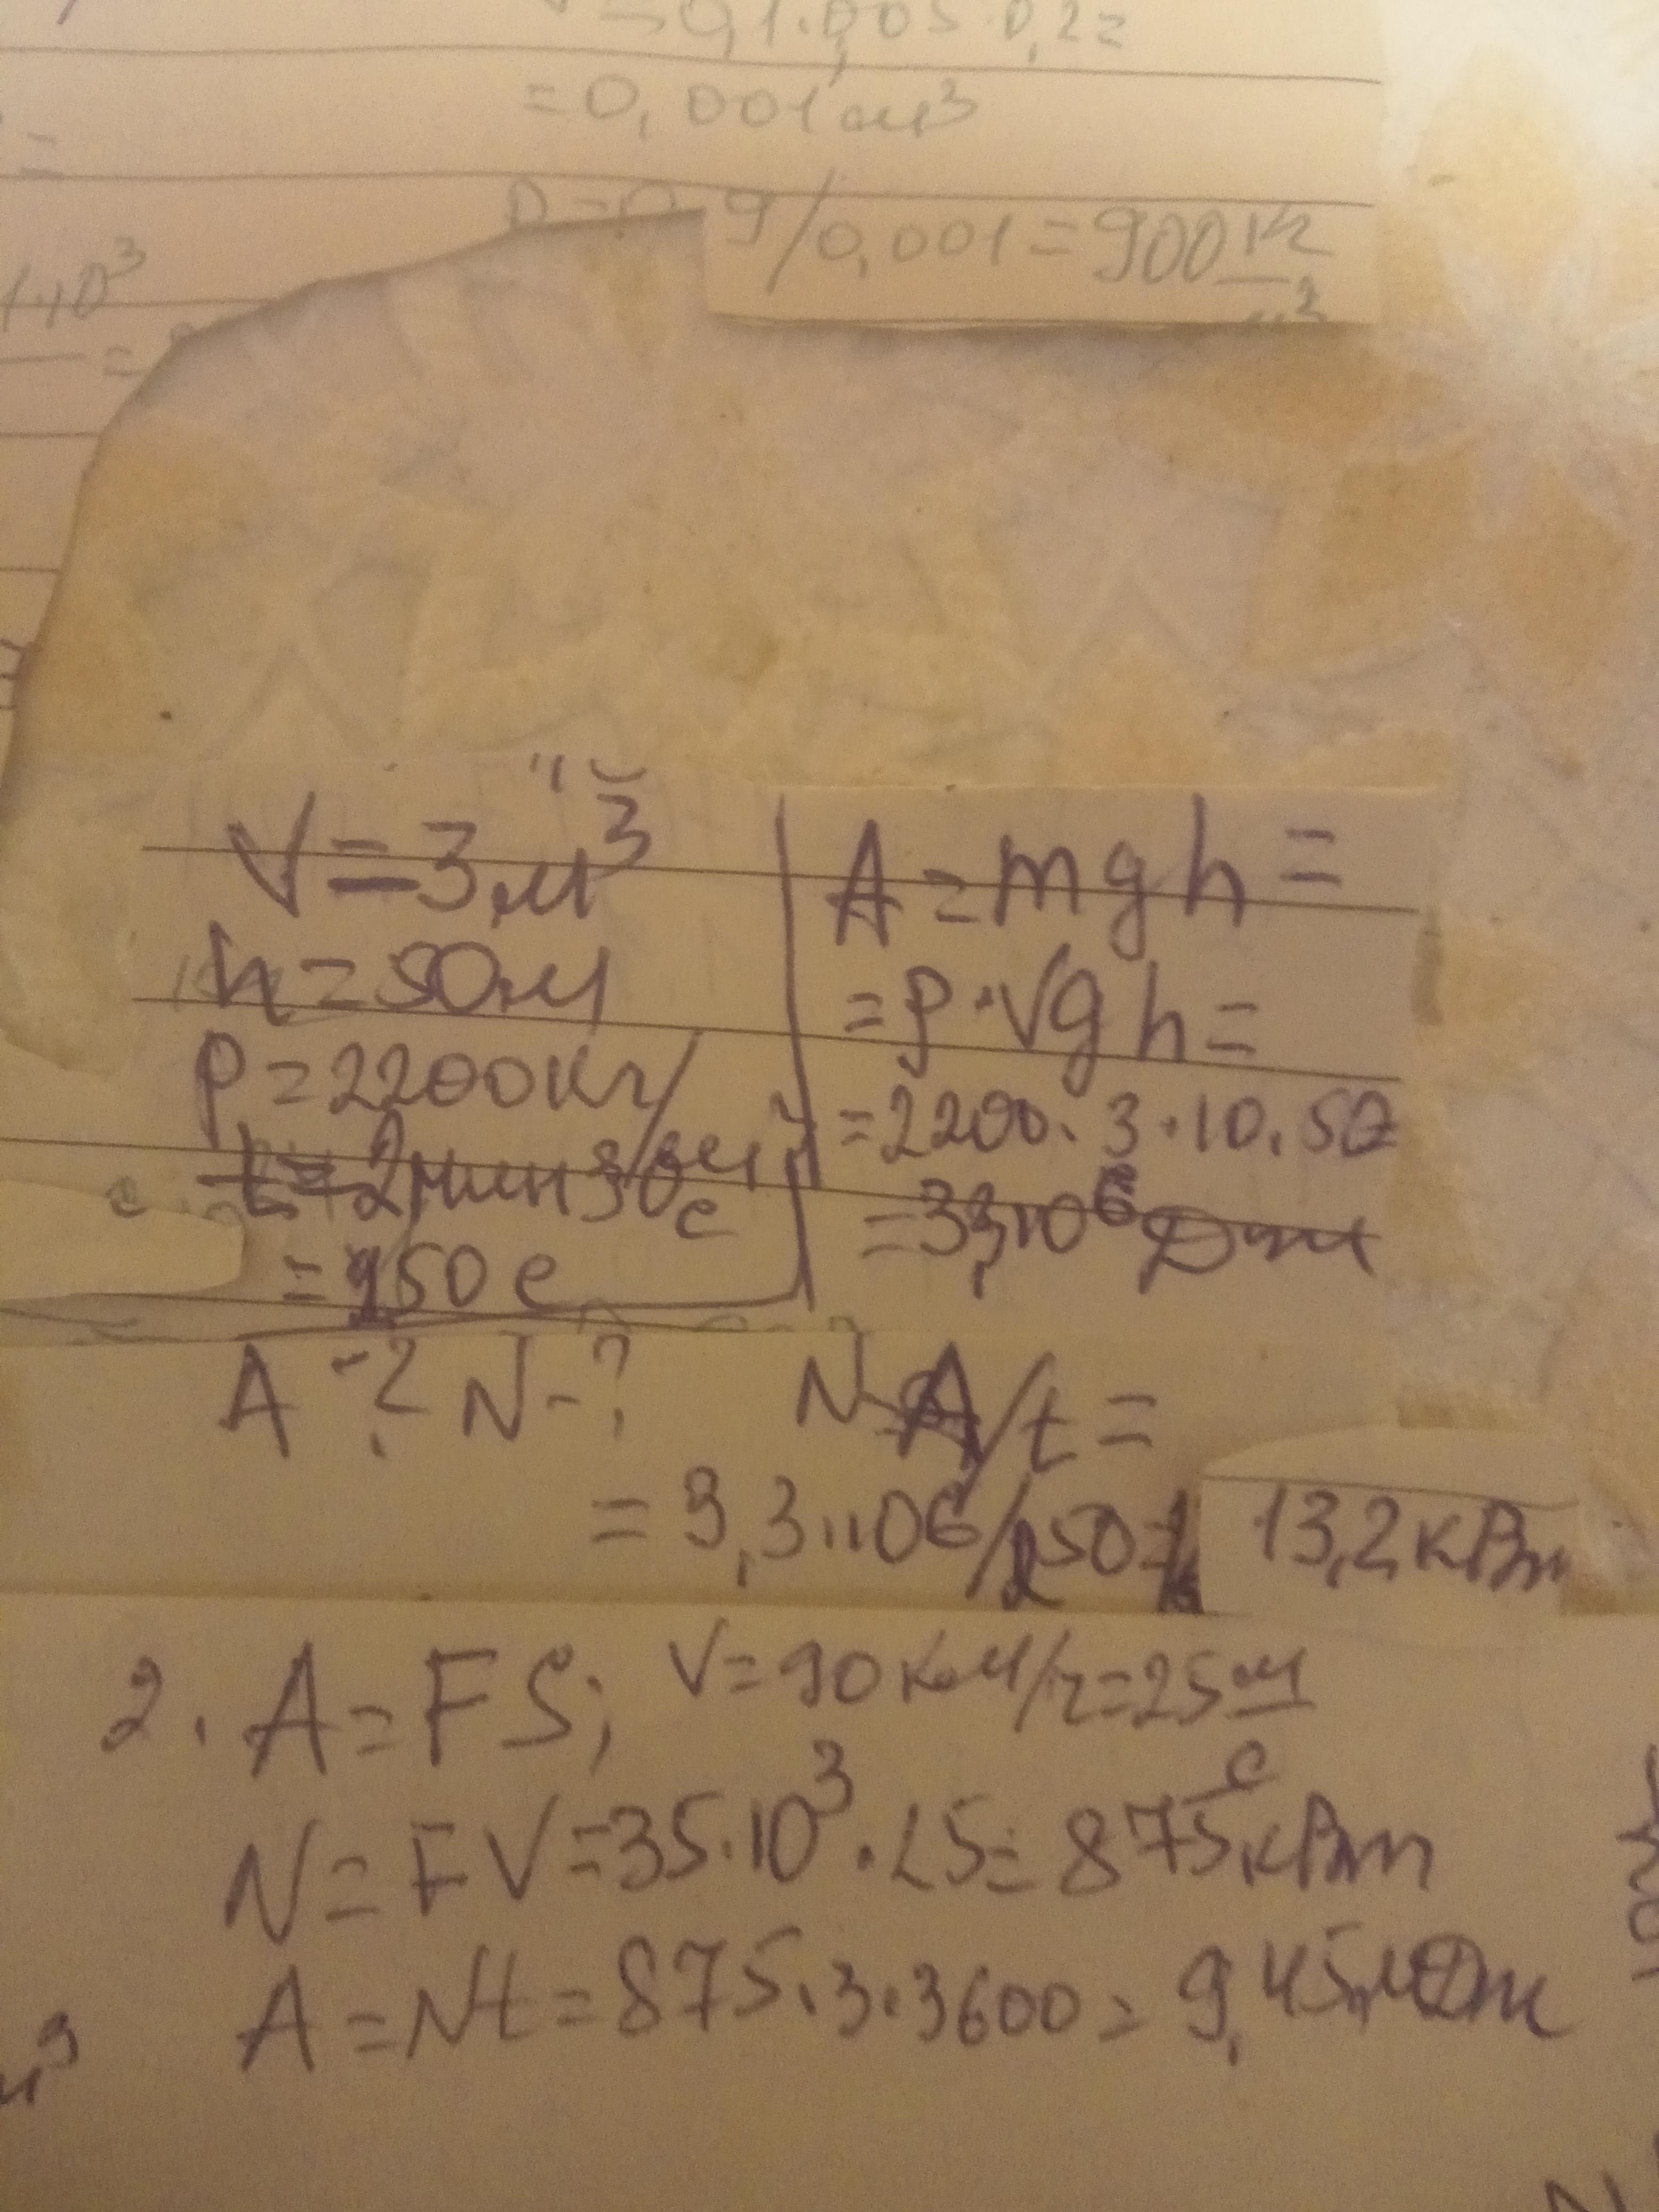 = 0,1·0,005·0,2=
= 0,001 м³
9/0,001 = 900 кг
1·10³
V = 3 м³
h = 50 м
ρ = 2200 кг/м³
t = 2 мин 30 с
= 150 с
A - ? N - ?
A = mgh =
= ρ·Vgh =
= 2200·3·10·50
= 3,3·10⁶ Дж
N = A/t =
= 3,3·10⁶/250 =
13,2 кВт
2. A = FS; V = 90 км/ч = 25 м/с
N = FV = 35·10³·25 = 875 кВт
A = Nt = 875·3·3600 = 9,45 МДж